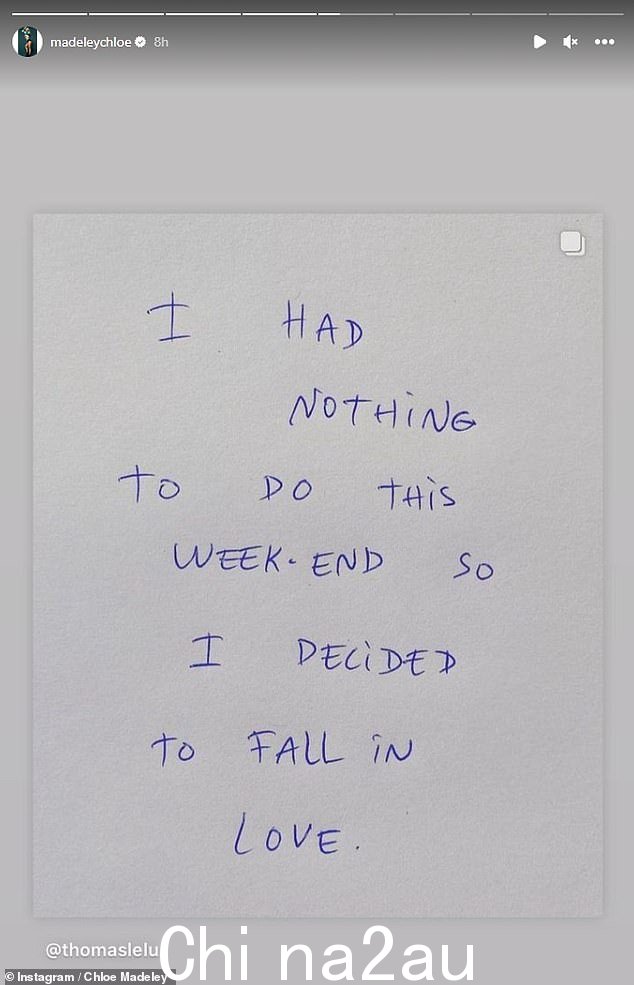 madeleychloe 8h
I HAD
NOTHING
TO DO THIS
WEEK-END SO
I DECIDED
TO FALL IN
LOVE.
@thomaslelu
Chi na2au
© Instagram / Chloe Madeley